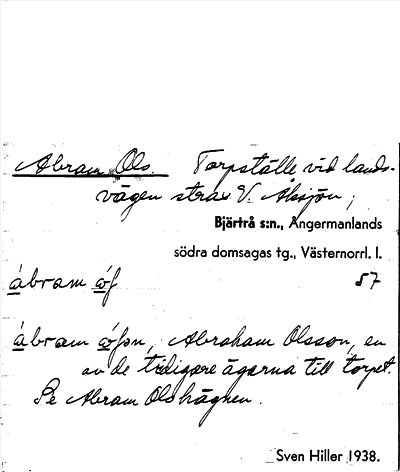 Abram Ols. Torpställe vid lands-
vägen strax V. Alsjön;
Bjärtrå s:n., Ångermanlands
södra domsagas tg., Västernorrl. l.
ábram ó̤f 57
ábram ó̤fən, Abraham Olsson, en
av de tidigare ägarna till torpet.
Se Abram Olshägnen.
Sven Hiller 1938.